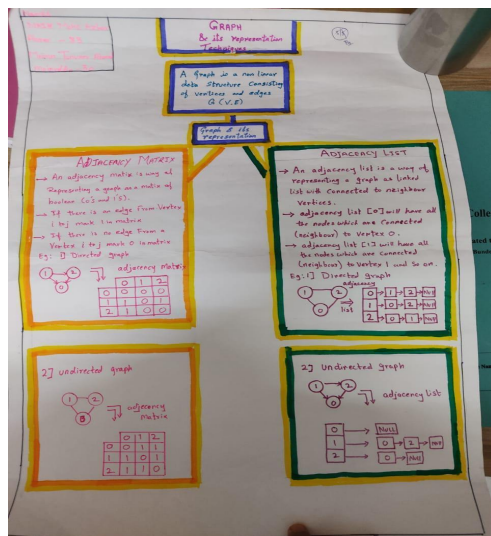 GRAPH
& its representation
Techniques
A graph is a non linear
data structure consisting
of vertices and edges
G (V, E)
Graph & its
representation
ADJACENCY MATRIX
→ An adjacency matix is way of
Representing a graph as a matix of
boolean (0's and 1's).
→ If there is an edge From Vertex
i to j mark 1 in matrix
→ If there is no edge From a
Vertex i to j mark 0 in matrix
Eg: 1] Directed graph
1 2
0
adjacency Matrix
0 1 2
0 0 0 0
1 1 0 1
2 1 0 0
ADJACENCY LIST
→ An adjacency list is a way of
representing a graph as linked
list with connected to neighbour
Vertices.
→ adjacency list [0] will have all
the nodes which are connected
(neighbour) to vertex 0.
→ adjacency list [1] will have
all the nodes which are connected
(neighbour) to vertex 1 and so on.
Eg: 1] Directed graph
1 2
0
adjacency
list
0 1 2 Null
1 0 2 Null
2 0 1
2] undirected graph
1 2
0
adjacency
matrix
0 1 2
0 0 1 1
1 1 0 1
2 1 1 0
2] Undirected graph
1 2
0
adjacency list
0 NULL
1 0 2
2 0 Null
Colle